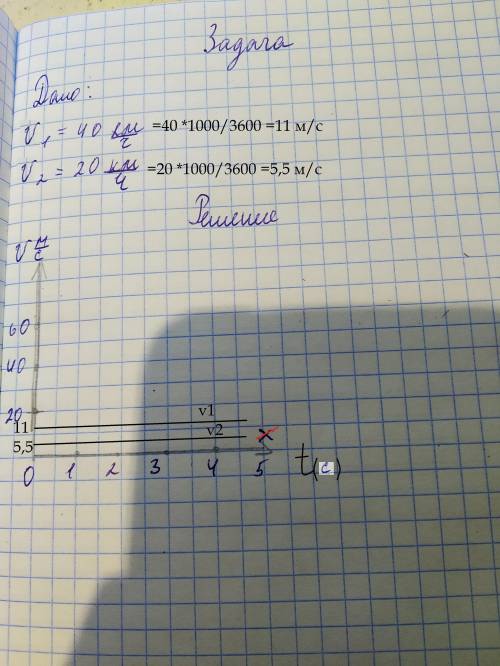 Задача
Дано:
V₁ = 40 км/ч =40 *1000/3600 =11 м/с
V₂ = 20 км/ч =20 *1000/3600 =5,5 м/с
Решение
V м/с
60
40
20
11
v1
5,5
v2
x
0 1 2 3 4 5 t(с)